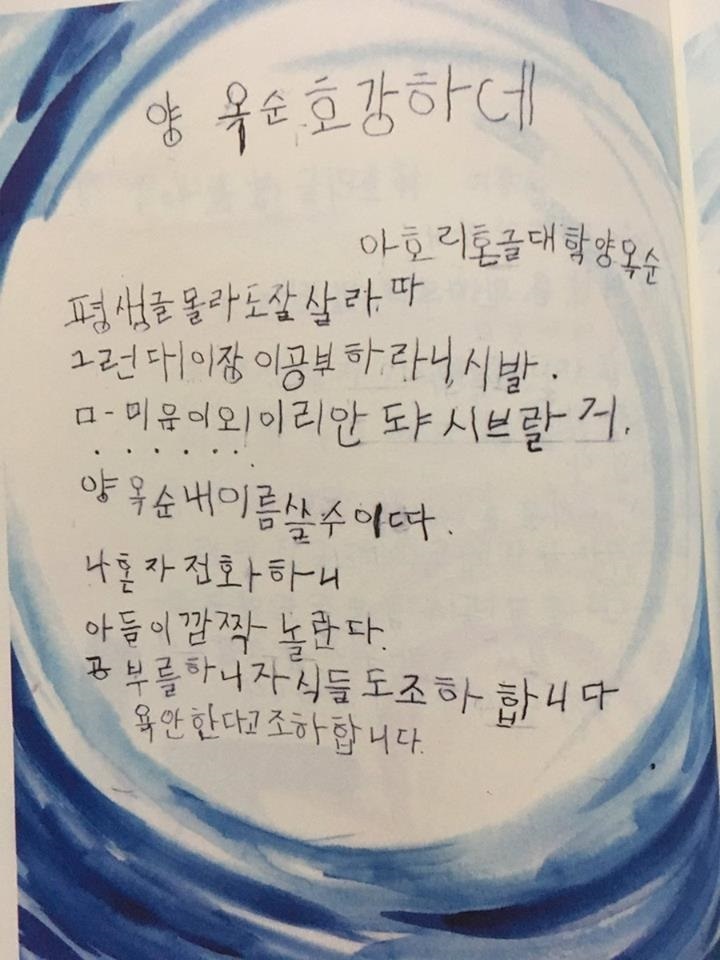 양 옥순 호강하네
아호리혼글대학양옥순
평생글몰라도잘살라따
그런대이장이공부하라닉시발.
ㅁ-미움이외이리안 도냐 시브랄거.
양옥순내이름쓸수이따.
나혼자전화하니
아들이깜짝놀란다.
공부를하니자식들도조하합니다
욕안한다고조하합니다.